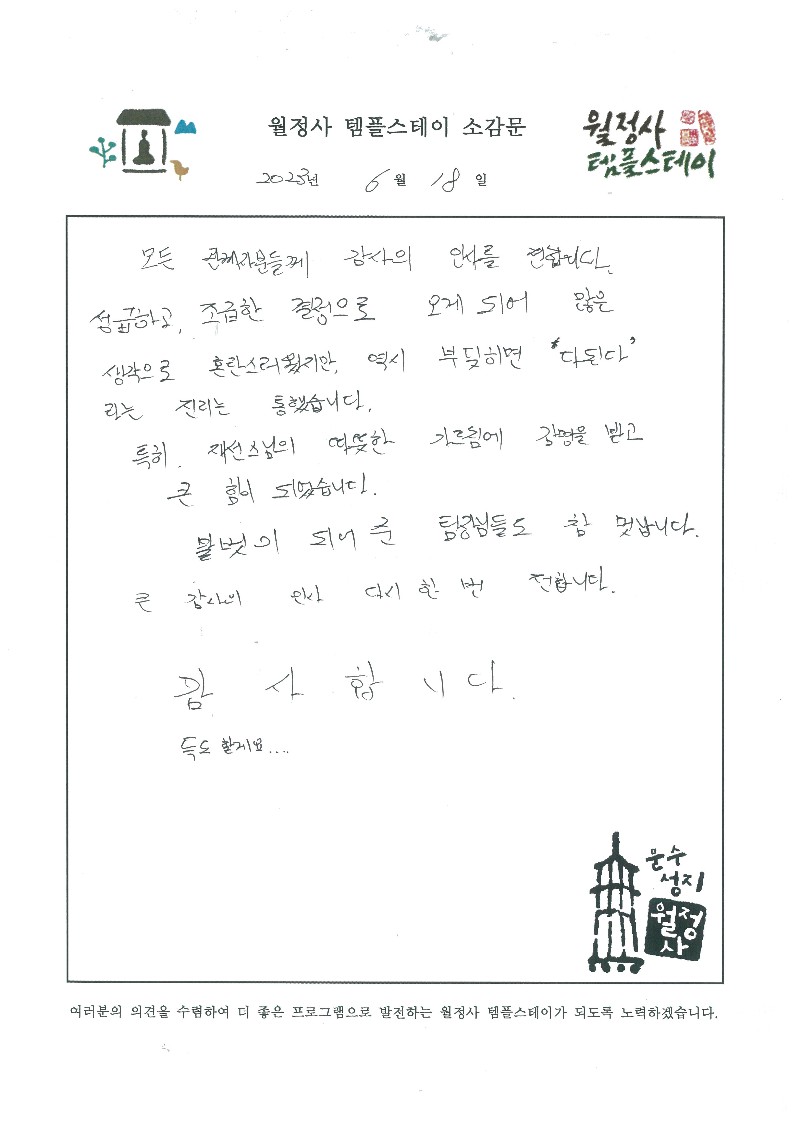 월정사 템플스테이 소감문
월정사
템플스테이
2023년 6월 18일
모든 관계자분들께 감사의 인사를 전합니다.
성급하고, 조급한 결정으로 오게 되어 많은
생각으로 혼란스러웠지만, 역시 부딪히면 "다된다"
라는 진리는 통했습니다.
특히. 재선스님의 따뜻한 가르침에 감명을 받고
큰 힘이 되었습니다.
말벗이 되어 준 팀장님들도 참 멋납니다.
큰 감사의 인사 다시 한 번 전합니다.
감 사 합 니 다.
득도 할게요....
문수
성지
월정
사
여러분의 의견을 수렴하여 더 좋은 프로그램으로 발전하는 월정사 템플스테이가 되도록 노력하겠습니다.